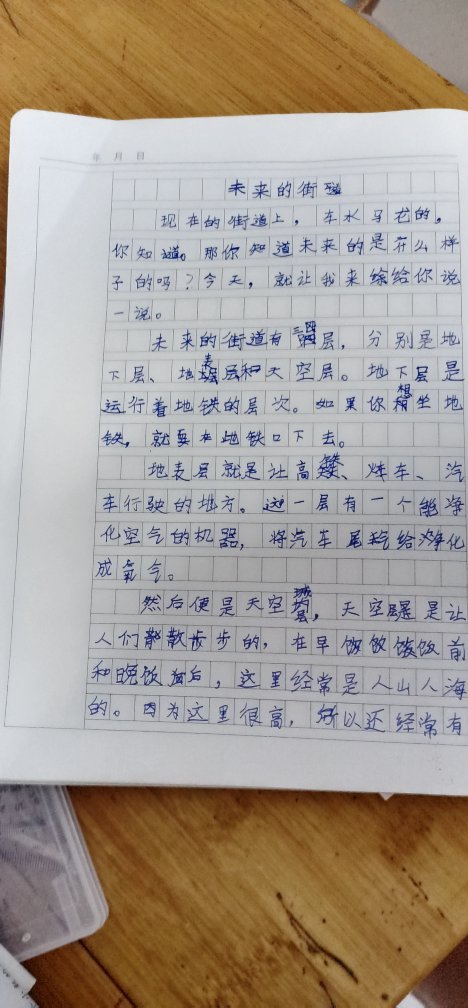 年 月 日
未来的街道
现在的街道上，车水马龙的，
你知道。那你知道未来的是什么样
子的吗？今天，就让我来给你说
一说。
未来的街道有三层，分别是地
下层、地表层和天空层。地下层是
运行着地铁的层次。如果你想坐地
铁，就要在地铁口下去。
地表层就是让高铁、火车、汽
车行驶的地方。这一层有一个能净
化空气的机器，将汽车尾气给净化
成氧气。
然后便是天空层，天空层是让
人们散散步步的，在早饭饭前
和晚饭后，这里经常是人山人海
的。因为这里很高，所以还经常有